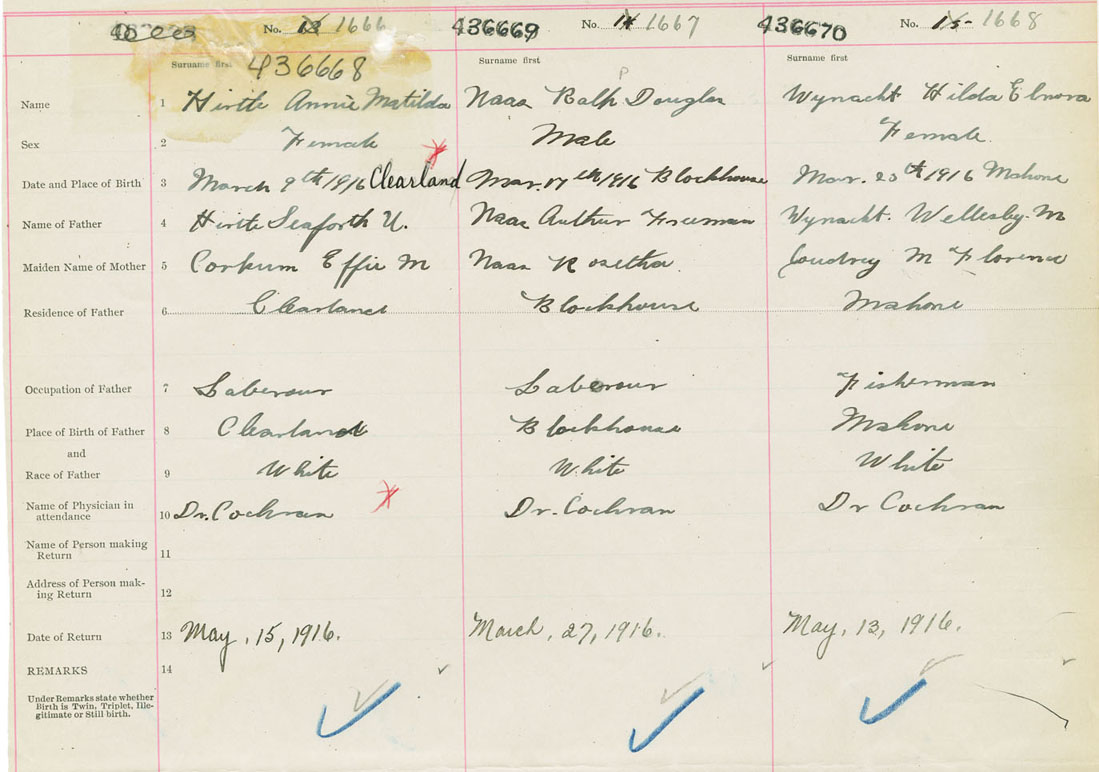 No. 13 1666 436669 No. 14 1667 436670 No. 15 1668
Surname first 436668 Surname first Surname first
Name 1 Hirtle Annie Matilda Naas Ralph Douglas Wynacht Hilda Elnora
P
Sex 2 Female Male Female
Date and Place of Birth 3 March 9th 1916 Clearland Mar. 17th 1916 Blockhouse Mar. 20th 1916 Mahone
Name of Father 4 Hirtle Seaforth U. Naas Authur Freeman Wynacht. Wellesby. M
Maiden Name of Mother 5 Corkum Effie M Naas Rosetha Joudrey M Florence
Residence of Father 6 Clearland Blockhouse Mahone
Occupation of Father 7 Laberour Laberour Fisherman
Place of Birth of Father 8 Clearland Blockhouse Mahone
and
Race of Father 9 White White White
Name of Physician in
attendance 10 Dr. Cochran Dr. Cochran Dr Cochran
Name of Person making
Return 11
Address of Person mak-
ing Return 12
Date of Return 13 May, 15, 1916. March, 27, 1916. May, 13, 1916.
REMARKS 14
Under Remarks state whether
Birth is Twin, Triplet, Ille-
gitimate or Still birth.